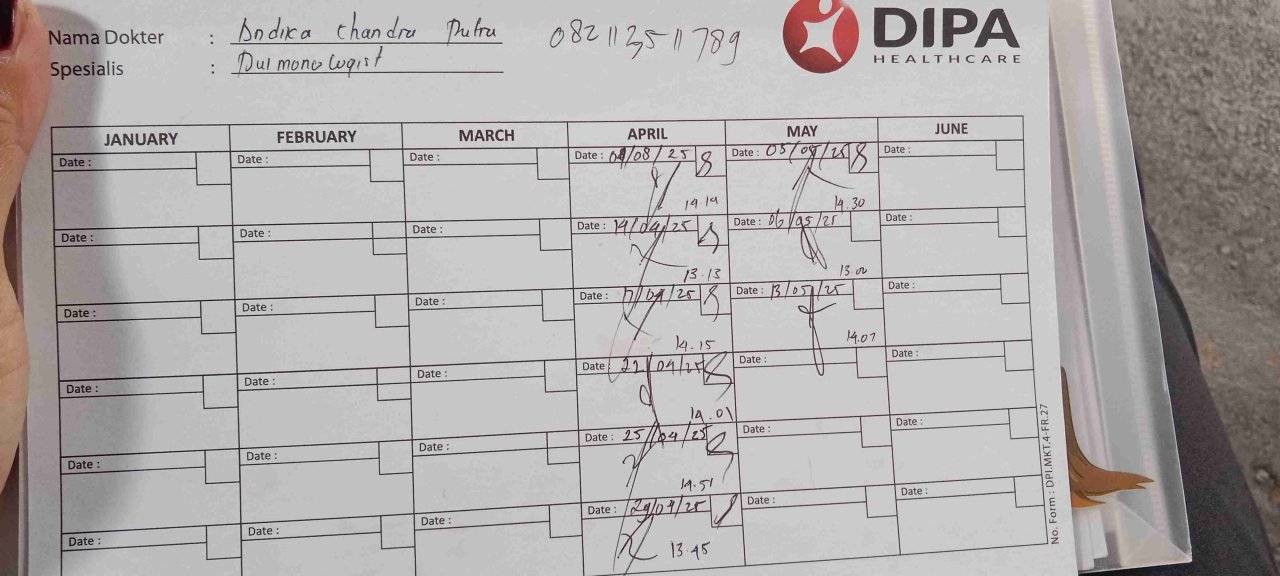 Nama Dokter : Andika Chandra Putra 082113511789
DIPA
HEALTHCARE
Spesialis : Pulmonologist
JANUARY FEBRUARY MARCH APRIL MAY JUNE
Date : Date : Date : Date : 04/08/25 Date : 05/05/25 Date :
14.14 14.30
Date : Date : Date : Date : 14/04/25 Date : 06/05/25 Date :
13.13 13.00
Date : Date : Date : Date : 17/04/25 Date : 13/05/25 Date :
14.15 14.07
Date : Date : Date : Date : 22/04/25 Date : Date :
14.01
Date : Date : Date : Date : 25/04/25 Date : Date :
14.51
Date : Date : Date : Date : 29/04/25 Date : Date :
13.45
No. Form : DPI.MKT.4-FR.27